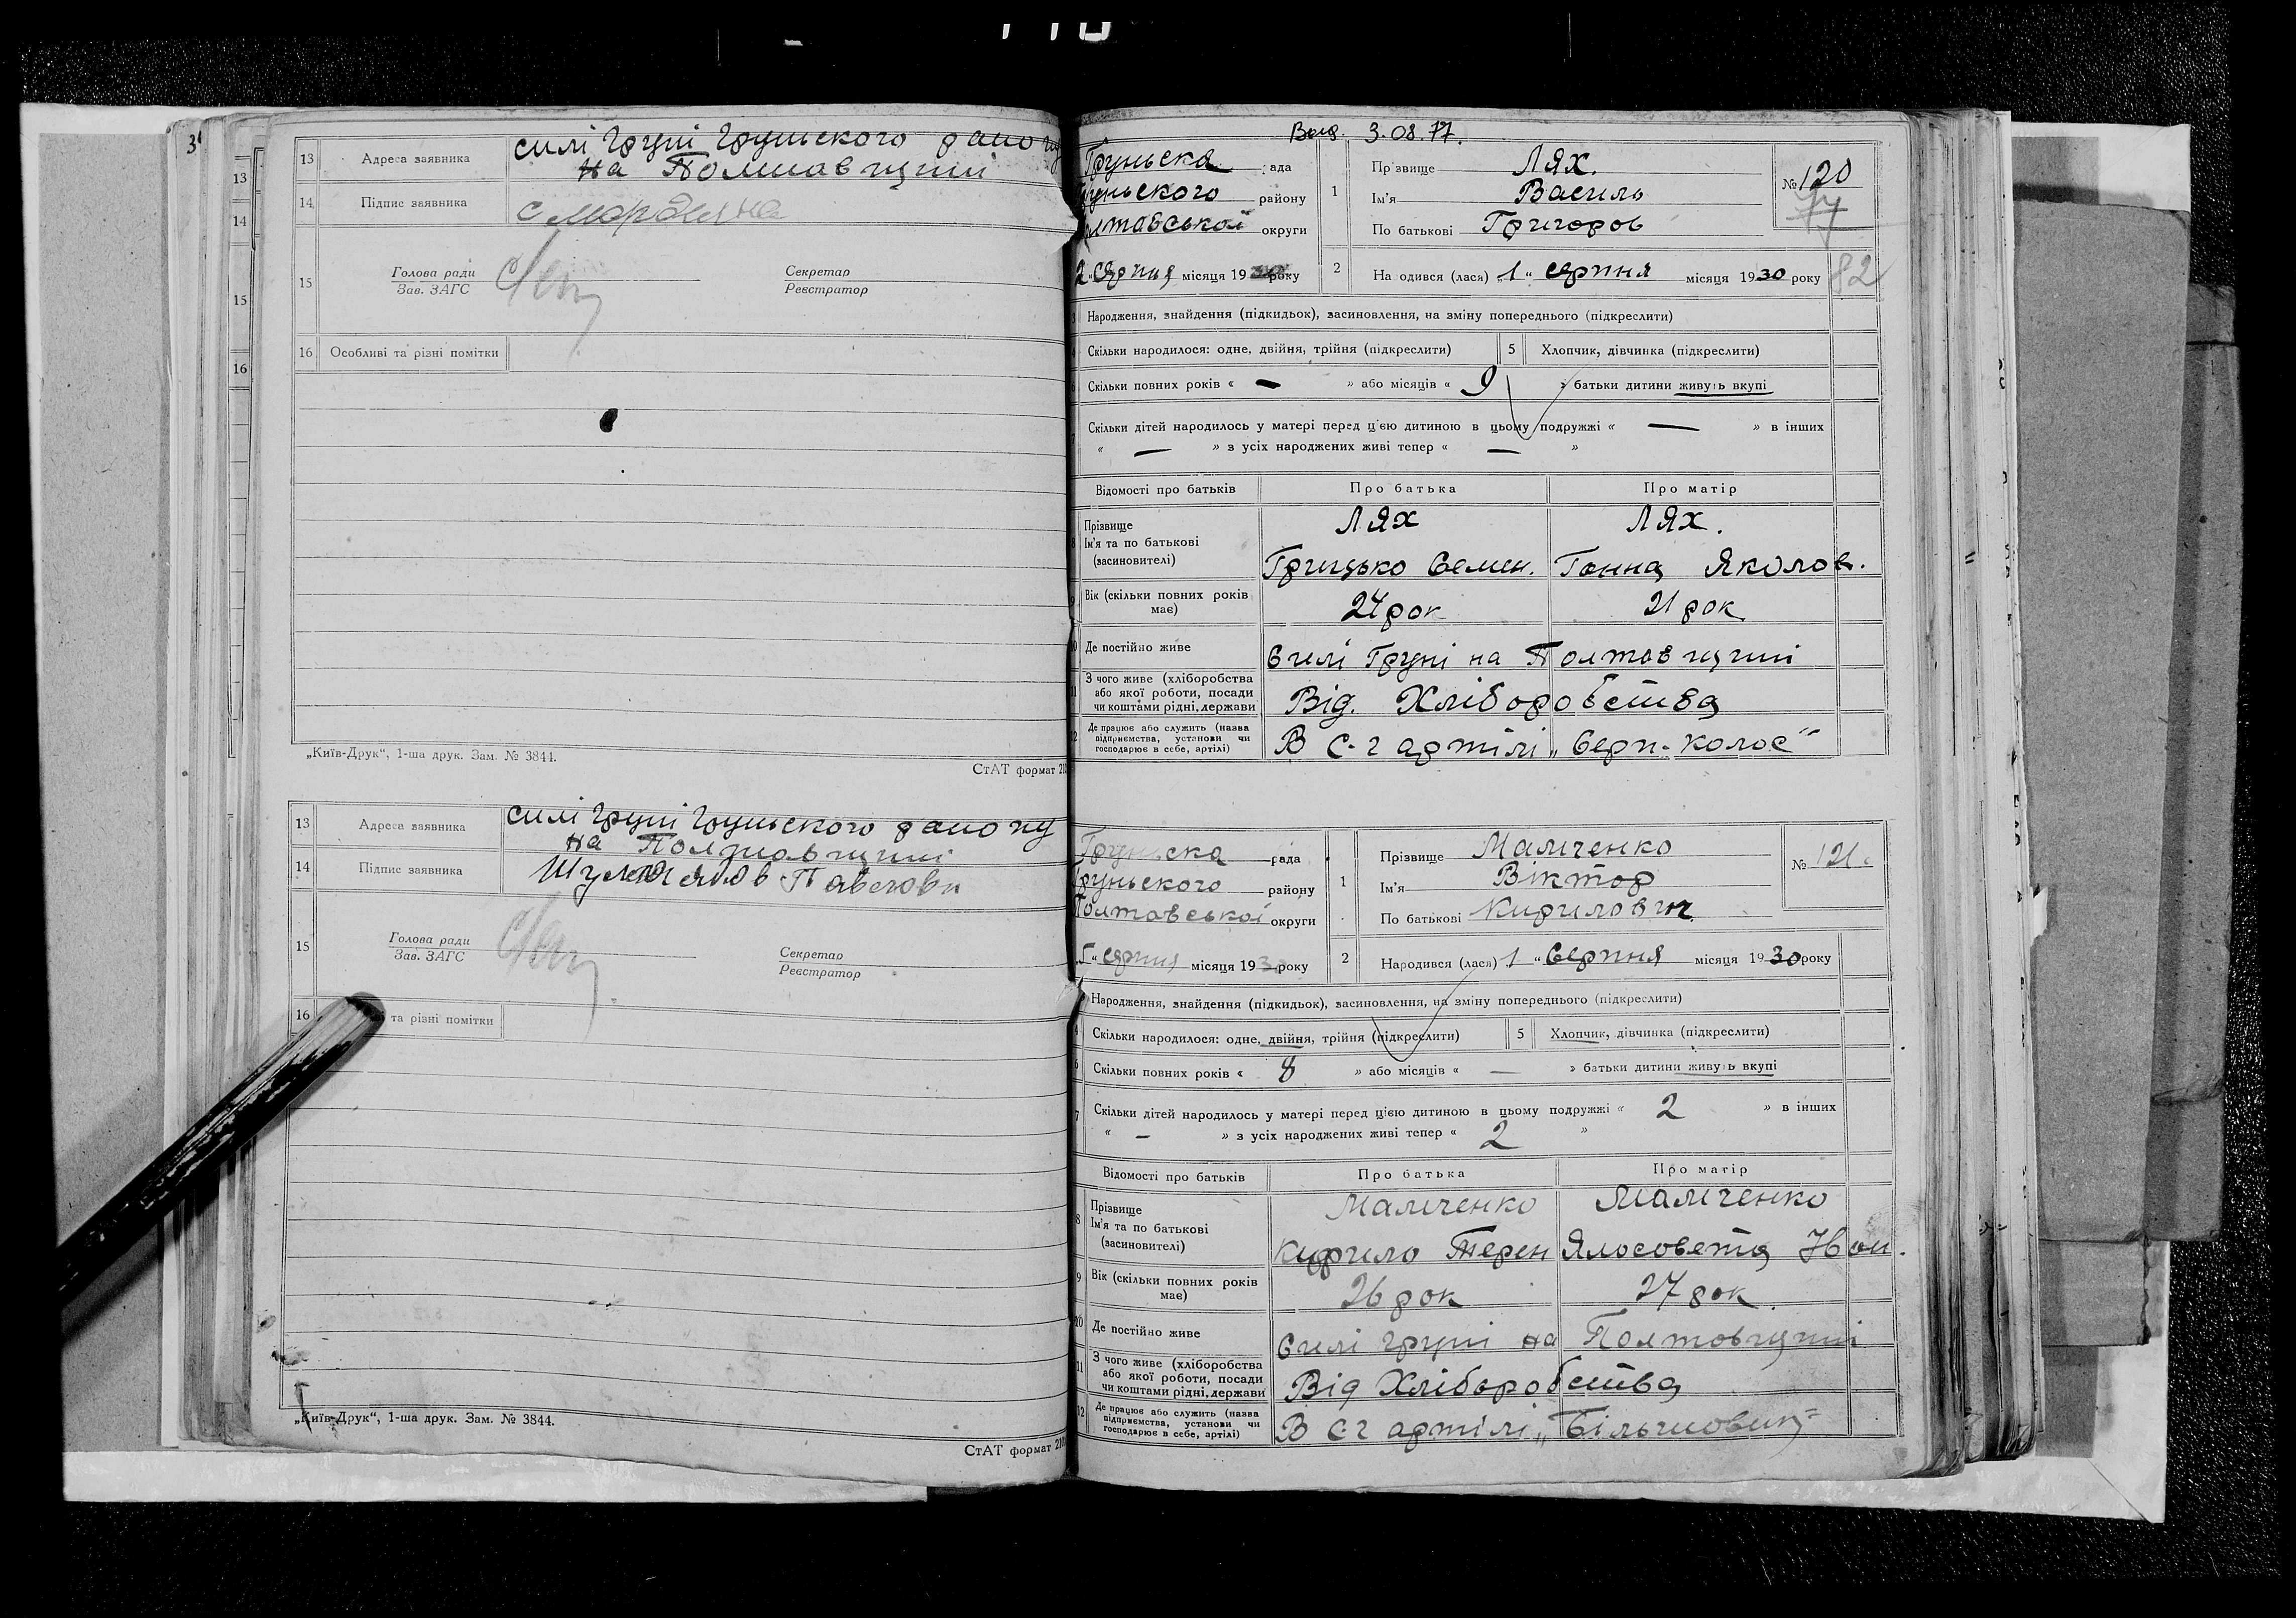 13 Адреса заявника силі Груні Груньского району
на Полтавщині
14 Підпис заявника
15 Голова ради
Зав. ЗАГС
Секретар
Реєстратор
16 Особливі та різні помітки
„Київ-Друк“, 1-ша друк. Зам. № 3844.
СтАТ формат
13 Адреса заявника силі Груні Груньского району
на Полтавщині
14 Підпис заявника
15 Голова ради
Зав. ЗАГС
Секретар
Реєстратор
16 та різні помітки
„Київ-Друк“, 1-ша друк. Зам. № 3844.
СтАТ формат
3.08.77.
Груньска рада
Груньского району
округи
2 „ Серпня місяця 19 року
1 Прізвище Лях.
Ім'я Василь
По батькові Григоров
№ 120
77
82
2 Народився (лася) „1“ серпня місяця 1930 року
Народження, знайдення (підкидьок), засиновлення, на зміну попереднього (підкреслити)
Скільки народилося: одне, двійня, трійня (підкреслити) 5 Хлопчик, дівчинка (підкреслити)
Скільки повних років « — » або місяців « 9 » батьки дитини живуть вкупі
Скільки дітей народилось у матері перед цією дитиною в цьому подружжі « — » в інших
« — » з усіх народжених живі тепер « — »
Відомості про батьків Про батька Про матір
Прізвище Лях Лях.
Ім'я та по батькові
(засиновителі) Грицько Семен. Ганна Яколов.
Вік (скільки повних років
має) 24 рок 21 рок
Де постійно живе Силі Груні на Полтавщині
З чого живе (хліборобства
або якої роботи, посади
чи коштами рідні, держави Від. Хліборобства
Де працює або служить (назва
підприємства, установи чи
господарює в себе, артілі) В с-г артілі „Серп-колос“
Груньска рада
Груньского району
Полтавської округи
„ серпня місяця 1930 року
1 Прізвище Малченко
Ім'я Віктор
По батькові Кирилович
№ 121.
2 Народився (лася) 1 „ Серпня місяця 1930 року
Народження, знайдення (підкидьок), засиновлення, на зміну попереднього (підкреслити)
4 Скільки народилося: одне, двійня, трійня (підкреслити) 5 Хлопчик, дівчинка (підкреслити)
6 Скільки повних років « 8 » або місяців « — » батьки дитини живуть вкупі
7 Скільки дітей народилось у матері перед цією дитиною в цьому подружжі « 2 » в інших
« — » з усіх народжених живі тепер « 2 »
Відомості про батьків Про батька Про матір
8 Прізвище Малченко Малченко
Ім'я та по батькові
(засиновителі) Кирило Терен Ялосовета Iван.
9 Вік (скільки повних років
має) 26 рок 27 рок.
10 Де постійно живе Силі Груні на Полтовщині
11 З чого живе (хліборобства
або якої роботи, посади
чи коштами рідні, держави Від Хліборобства
12 Де працює або служить (назва
підприємства, установи чи
господарює в себе, артілі) В с-г артілі „Більшовик“